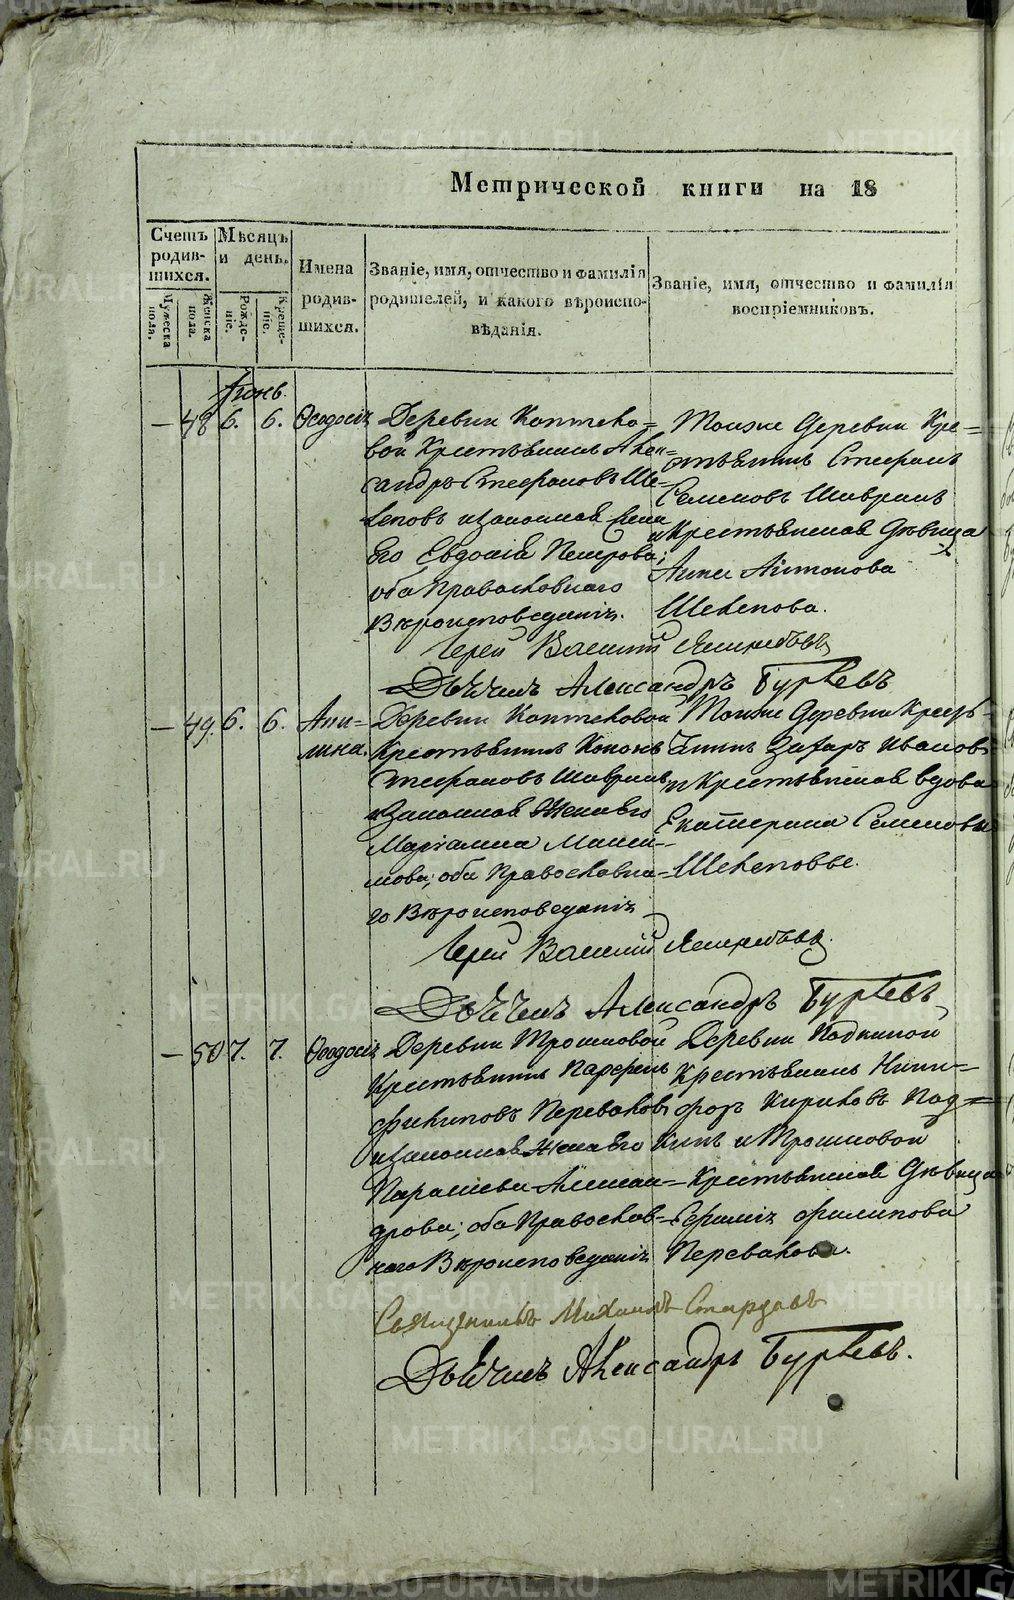 Метрической книги на 18
Счетъ родив-шихся.
Мѣсяцъ и день.
Имена родив-шихся.
Званіе, имя, отчество и фамилія родителей, и какого вѣроиспо-вѣданія.
Званіе, имя, отчество и фамилія воспріемниковъ.
Мужеска пола.
Женска пола.
Рожде-ніе.
Креще-ніе.
Іюнь.
— 48 6. 6. Ѳеодосія
Деревни Коптело-
вой Крестьянинъ Алек-
сандръ Стефановъ Ше-
леповъ и законная жена
его Евдокія Петрова;
оба Православнаго
Вѣроисповеданія.
Тойже деревни Кре-
стьянинъ Стефанъ
Семеновъ Шавринъ
и Крестьянская дѣвица
Анна Антонова
Шелепова.
Іерей Василій
Дьячокъ Александръ Бурлевъ
— 49. 6. 6. Апи-
лина.
Деревни Коптеловой
Крестьянинъ Кононъ
Стефановъ Шавринъ
и законная жена его
Маріамна Макси-
мова; оба Православна-
го Вѣроисповеданія
Тойже деревни Кресть-
янинъ Захаръ Ивановъ
и Крестьянская вдова
Екатерина Семенова
Шелеповы.
Іерей Василій
Дьячокъ Александръ Бурлевъ
— 50 7. 7. Ѳеодосія
Деревни Трошковой
Крестьянинъ Парфенъ
Филиповъ Переваловъ
и законная жена его
Параскева Алексан-
дрова; оба Православ-
наго Вѣроисповеданія
Деревни Подкиной
Крестьянинъ Ники-
форъ Кириловъ Под-
кинъ и Трошковой
Крестьянская дѣвица
Ефимія Филипова
Перевалова.
Священникъ Михаилъ
Дьячокъ Александръ Бурлевъ.
METRIKI.GASO-URAL.RU